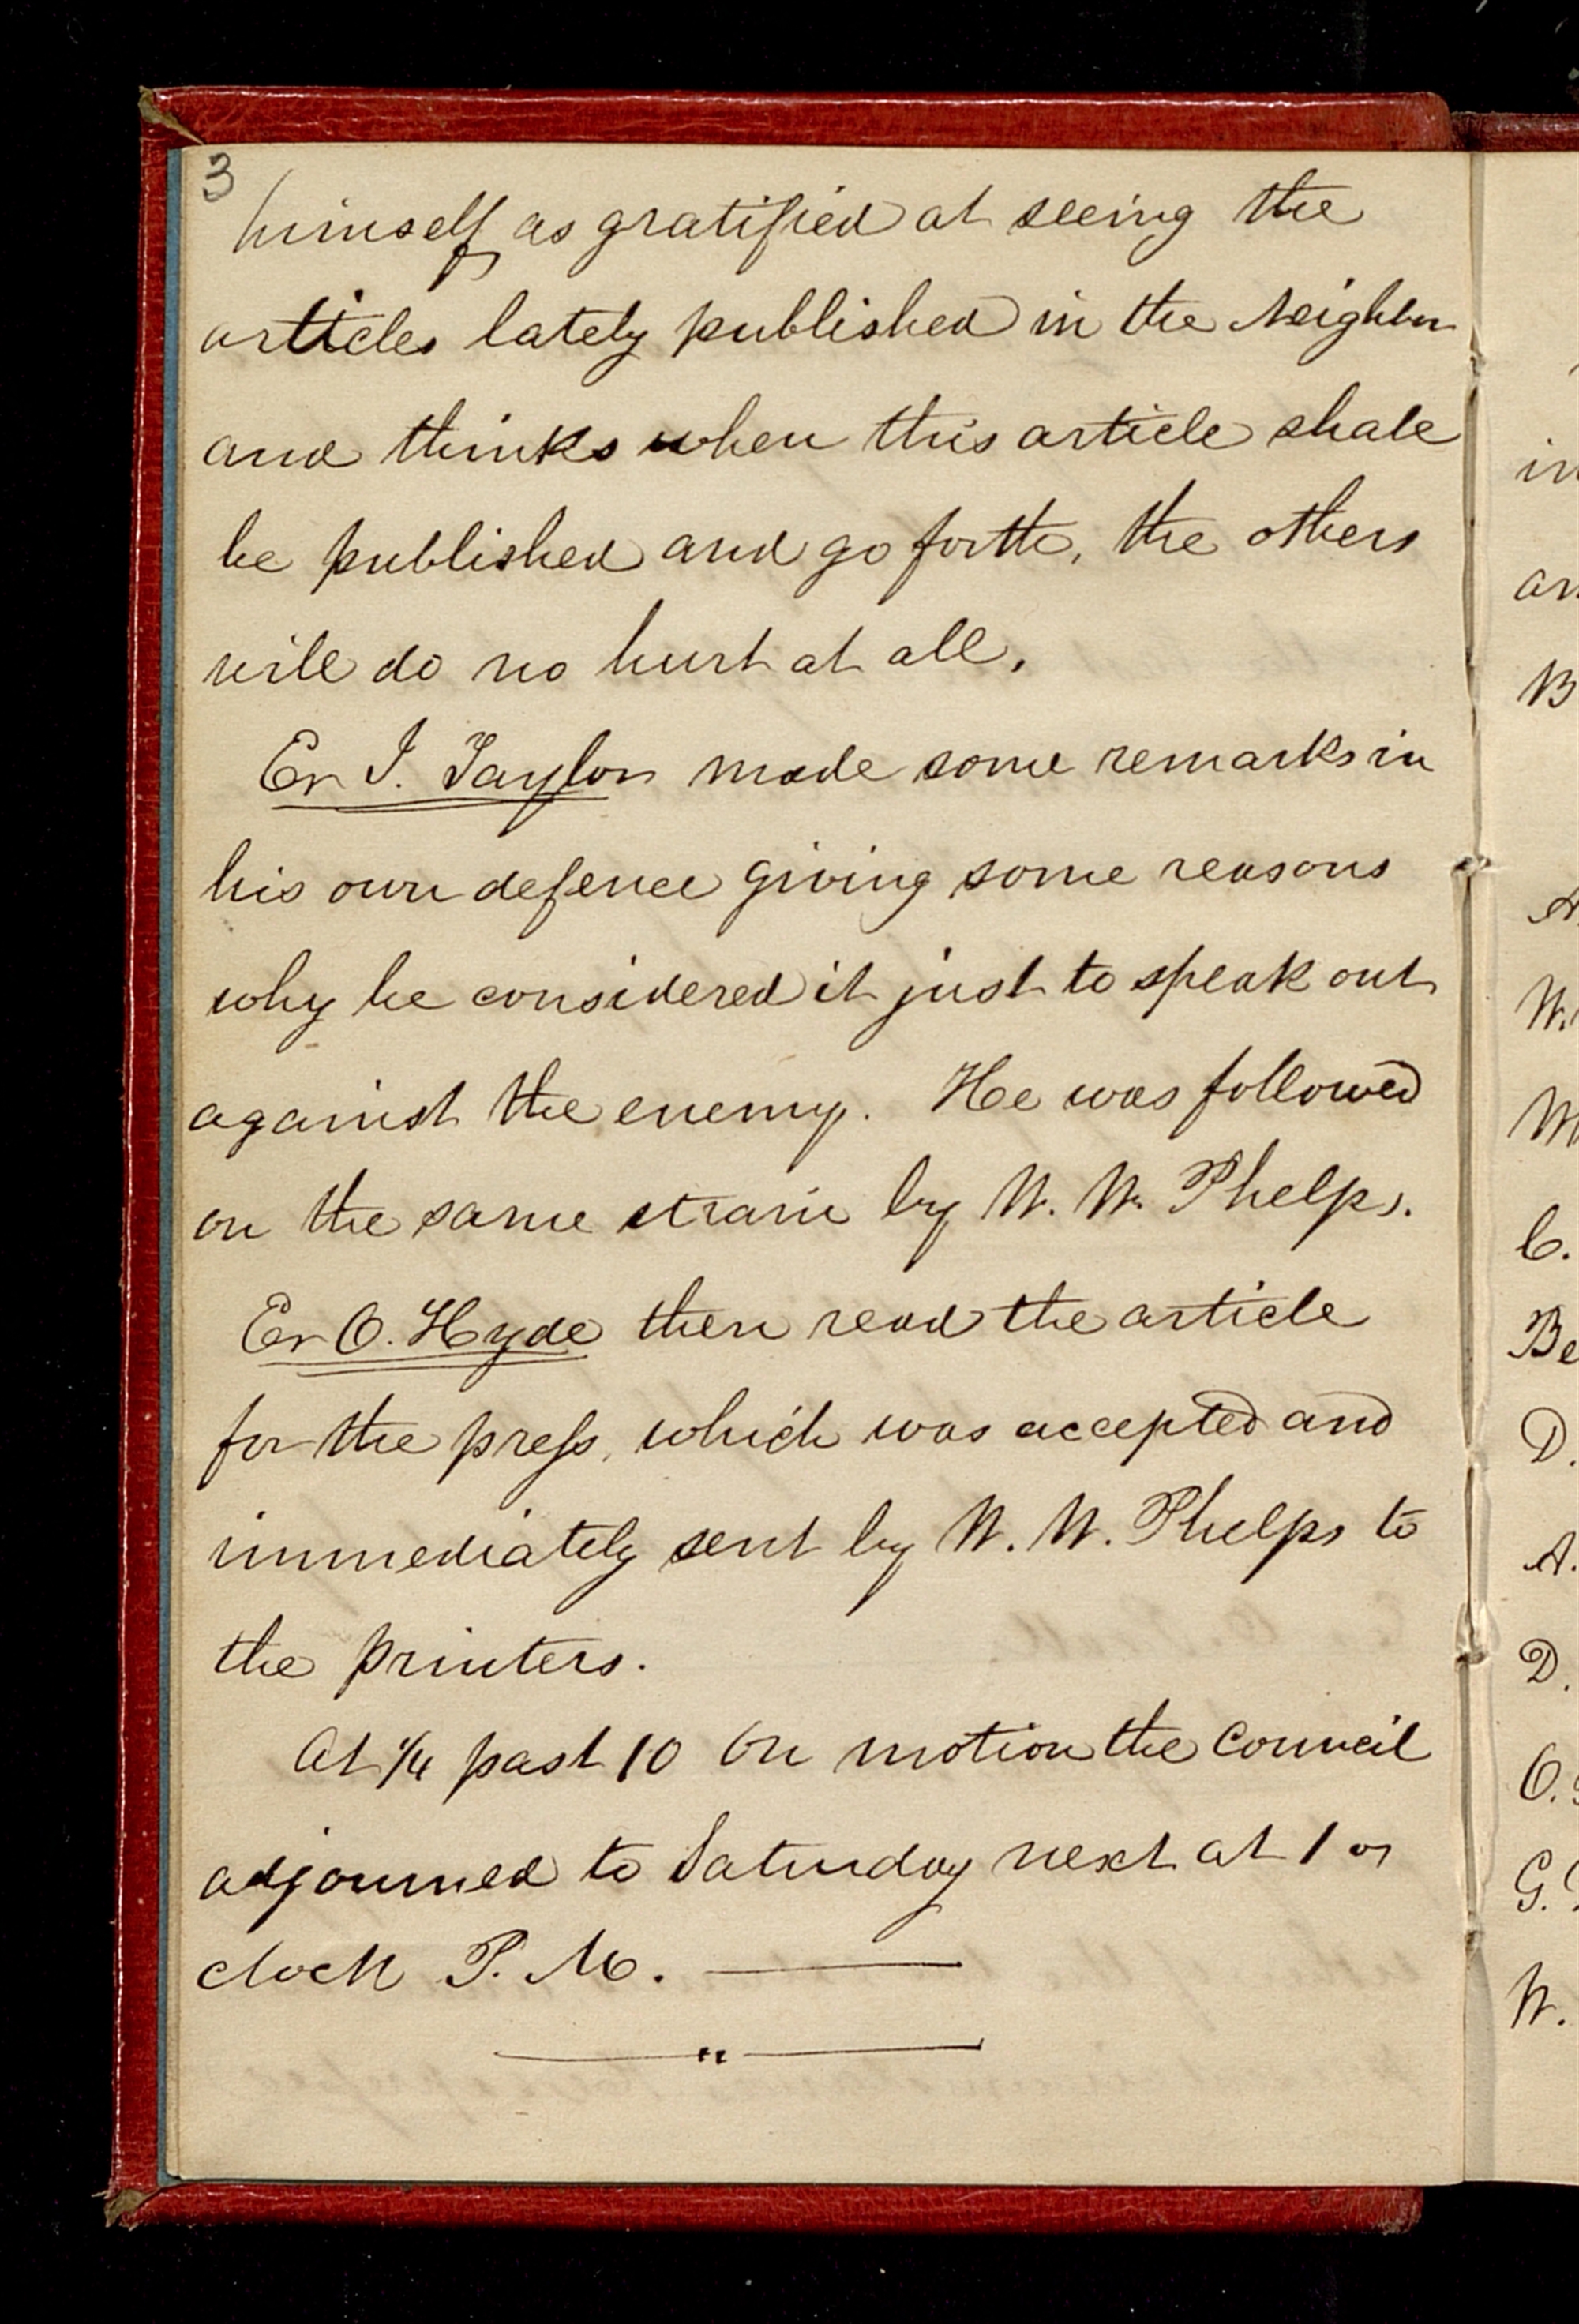 3
himself as gratified at seeing the
articles lately published in the Neighbor
and thinks when this article shall
be published and go forth, the others
will do no hurt at all.
Er J. Taylor made some remarks in
his own defence giving some reasons
why he considered it just to speak out
against the enemy. He was followed
on the same strain by W. W. Phelps.
Er O. Hyde then read the article
for the press, which was accepted and
immediately sent by W. W. Phelps to
the printers.
At 1/4 past 10 On motion the council
adjourned to Saturday next at 1 o
clock P. M.
in
an
B
A
W.
M
C.
Be
D.
A.
D.
O.
G.
W.